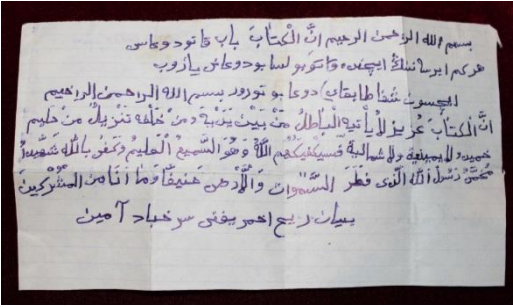 بسم الله الرحمن الرحيم انَّ الْكتَابَ باب قانودوعاسى
هركم ايرسا ننك ايچنده قان بولسا بودوعانى يازوب
ايچسون شفا طابقاى دوعا بو تورور بسم الله الرحمن الراحيم
انَّ الْكتَابَ عَزِيز لايأتيه الباطلُ مَنْ بَيْنَ يَدَيْهَ وَمنْ خَلْفه تَنْزِيلٌ منْ حليم
حميد ولايمينه ولاشماله فسيكفيكهم اللهُ وَهُوَ السَّميعُ الْعَليمُ وَكفى بالله شَهيداً
مُحَمَّدٌ رَسُولُ الله الَّذى فطَرَ السَّموات وَالْأرْضَ حَنيفاً وَمَا أنَا منَ الْمُشْركينَ
ريح احمر يعنى سرخباد آمين